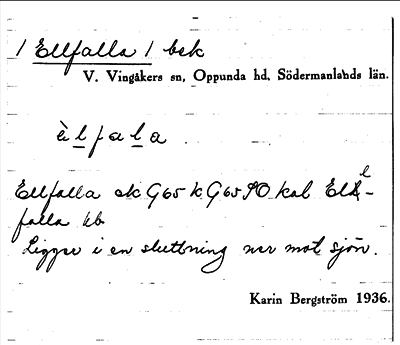 / Ellfalla / bek
V. Vingåkers sn, Oppunda hd, Södermanlands län.
èlfala
Ellfalla ek G 65 k G 65 SO kal Ell-
falla kb
Ligger i en sluttning ner mot sjön.
Karin Bergström 1936.